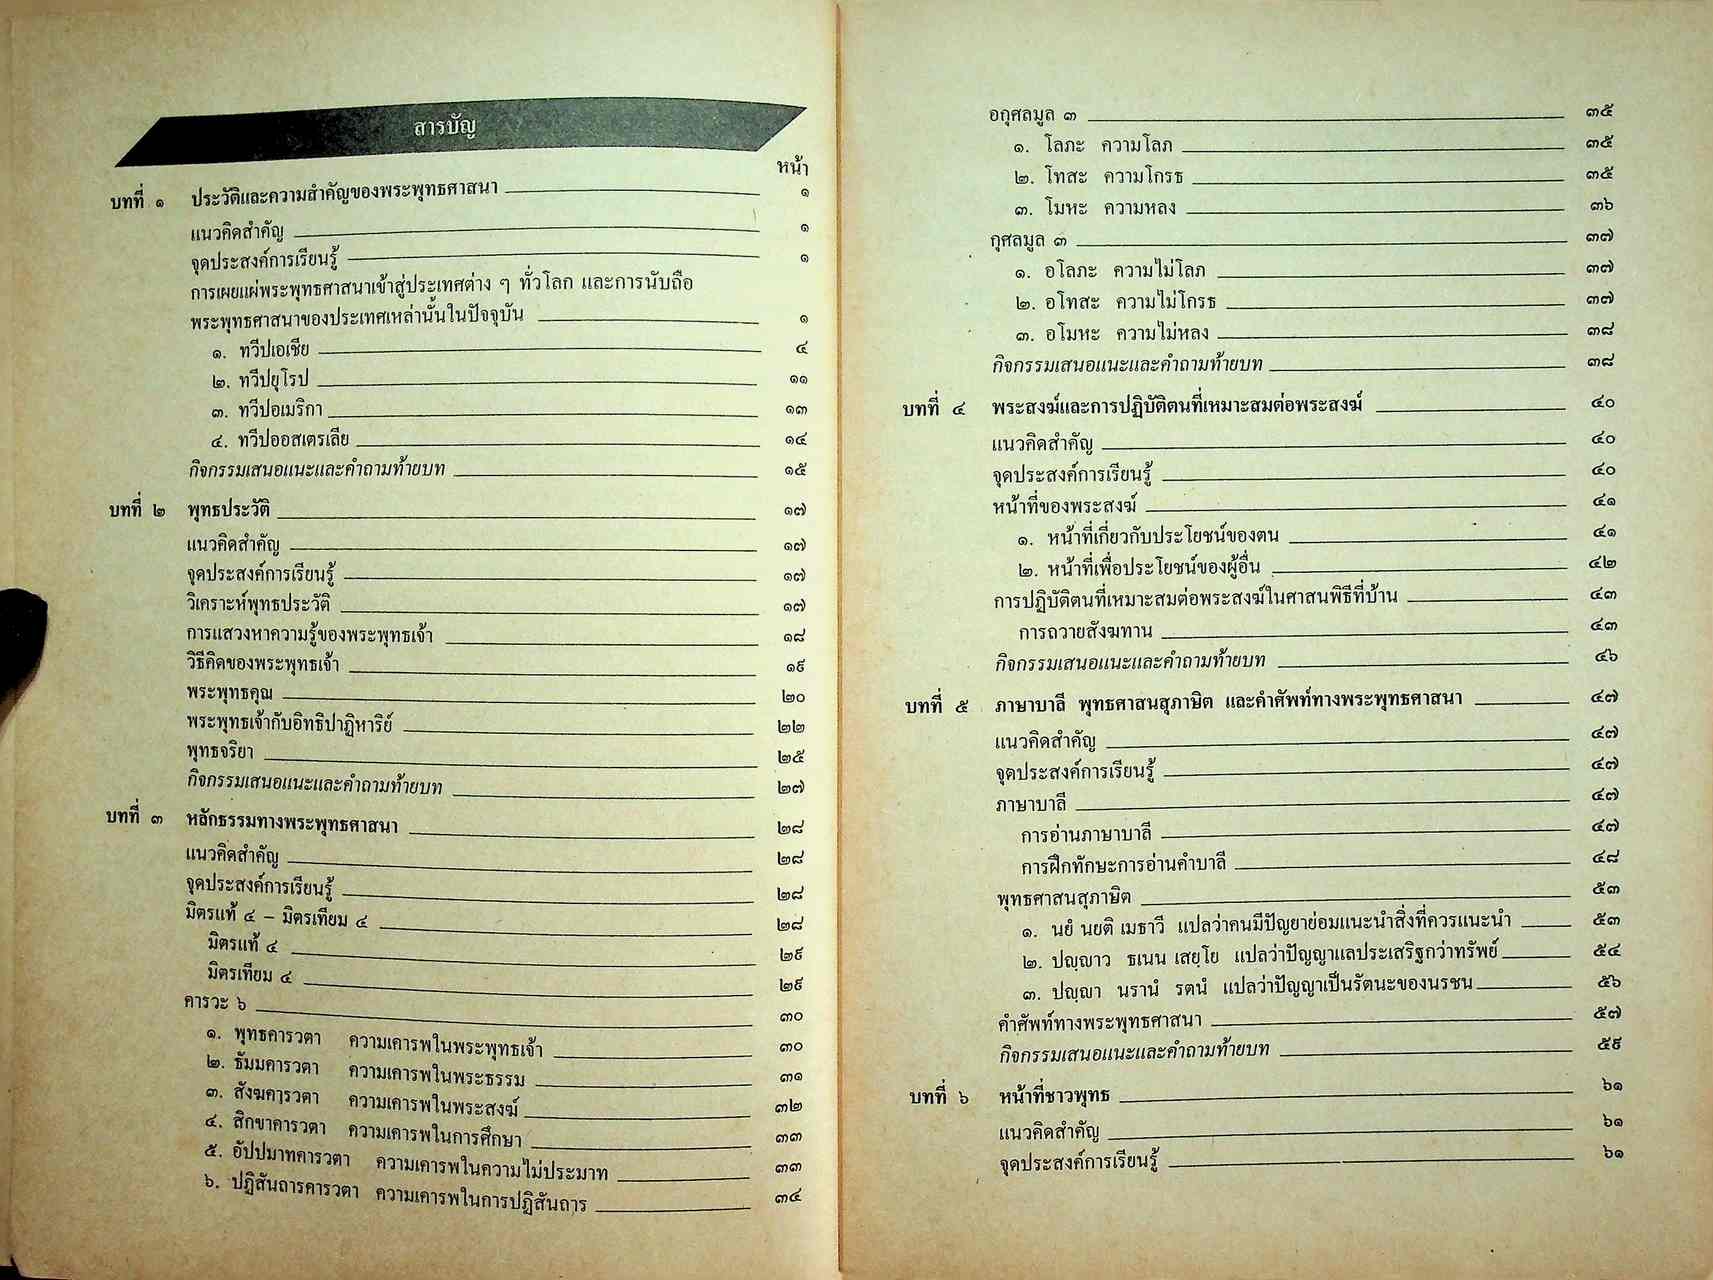 สารบัญ
หน้า
บทที่ ๑ ประวัติและความสำคัญของพระพุทธศาสนา ๑
แนวคิดสำคัญ ๑
จุดประสงค์การเรียนรู้ ๑
การเผยแผ่พระพุทธศาสนาเข้าสู่ประเทศต่าง ๆ ทั่วโลก และการนับถือ
พระพุทธศาสนาของประเทศเหล่านั้นในปัจจุบัน ๑
๑. ทวีปเอเชีย ๔
๒. ทวีปยุโรป ๑๑
๓. ทวีปอเมริกา ๑๓
๔. ทวีปออสเตรเลีย ๑๔
กิจกรรมเสนอแนะและคำถามท้ายบท ๑๕
บทที่ ๒ พุทธประวัติ ๑๗
แนวคิดสำคัญ ๑๗
จุดประสงค์การเรียนรู้ ๑๗
วิเคราะห์พุทธประวัติ ๑๗
การแสวงหาความรู้ของพระพุทธเจ้า ๑๘
วิธีคิดของพระพุทธเจ้า ๑๙
พระพุทธคุณ ๒๐
พระพุทธเจ้ากับอิทธิปาฏิหาริย์ ๒๒
พุทธจริยา ๒๕
กิจกรรมเสนอแนะและคำถามท้ายบท ๒๗
บทที่ ๓ หลักธรรมทางพระพุทธศาสนา ๒๘
แนวคิดสำคัญ ๒๘
จุดประสงค์การเรียนรู้ ๒๘
มิตรแท้ ๔ – มิตรเทียม ๔ ๒๘
มิตรแท้ ๔ ๒๙
มิตรเทียม ๔ ๒๙
คารวะ ๖ ๓๐
๑. พุทธคารวตา ความเคารพในพระพุทธเจ้า ๓๐
๒. ธัมมคารวตา ความเคารพในพระธรรม ๓๑
๓. สังฆคารวตา ความเคารพในพระสงฆ์ ๓๒
๔. สิกขาคารวตา ความเคารพในการศึกษา ๓๓
๕. อัปปมาทคารวตา ความเคารพในความไม่ประมาท ๓๓
๖. ปฏิสันถารคารวตา ความเคารพในการปฏิสันถาร ๓๔
อกุศลมูล ๓ ๓๕
๑. โลภะ ความโลภ ๓๕
๒. โทสะ ความโกรธ ๓๕
๓. โมหะ ความหลง ๓๖
กุศลมูล ๓ ๓๗
๑. อโลภะ ความไม่โลภ ๓๗
๒. อโทสะ ความไม่โกรธ ๓๗
๓. อโมหะ ความไม่หลง ๓๘
กิจกรรมเสนอแนะและคำถามท้ายบท ๓๘
บทที่ ๔ พระสงฆ์และการปฏิบัติตนที่เหมาะสมต่อพระสงฆ์ ๔๐
แนวคิดสำคัญ ๔๐
จุดประสงค์การเรียนรู้ ๔๐
หน้าที่ของพระสงฆ์ ๔๑
๑. หน้าที่เกี่ยวกับประโยชน์ของตน ๔๑
๒. หน้าที่เพื่อประโยชน์ของผู้อื่น ๔๒
การปฏิบัติตนที่เหมาะสมต่อพระสงฆ์ในศาสนพิธีที่บ้าน ๔๓
การถวายสังฆทาน ๔๓
กิจกรรมเสนอแนะและคำถามท้ายบท ๔๖
บทที่ ๕ ภาษาบาลี พุทธศาสนสุภาษิต และคำศัพท์ทางพระพุทธศาสนา ๔๗
แนวคิดสำคัญ ๔๗
จุดประสงค์การเรียนรู้ ๔๗
ภาษาบาลี ๔๗
การอ่านภาษาบาลี ๔๗
การฝึกทักษะการอ่านคำบาลี ๔๘
พุทธศาสนสุภาษิต ๕๓
๑. นยํ นยติ เมธาวี แปลว่าคนมีปัญยาย่อมแนะนำสิ่งที่ควรแนะนำ ๕๓
๒. ปญฺญาว ธเนน เสยฺโย แปลว่าปัญญาแลประเสริฐกว่าทรัพย์ ๕๔
๓. ปญฺญา นรานํ รตนํ แปลว่าปัญญาเป็นรัตนะของนรชน ๕๖
คำศัพท์ทางพระพุทธศาสนา ๕๗
กิจกรรมเสนอแนะและคำถามท้ายบท ๕๙
บทที่ ๖ หน้าที่ชาวพุทธ ๖๑
แนวคิดสำคัญ ๖๑
จุดประสงค์การเรียนรู้ ๖๑